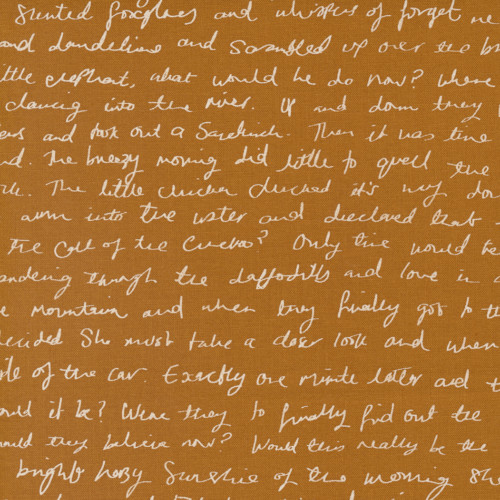 Stunted foxgloves and whispers of forget me
and dandelions and Scrambled up over the br
ittle elephant, what would he do now? Where
dancing into the river. Up and down they
and took out a Sandwich. Then it was time
nd. The breezy morning did little to quell the
The little chicken clucked it's way do
into the water and declared that
The call of the Cuckoo? Only time would te
andering through the daffodills and love in
e mountain and when they finally got to th
ecided She must take a closer look and when
of the car. Exactly one minute later and t
ould it be? Were they to finally find out the
ould they believe now? Would this really be the
bright hazy Sunshine of the morning She